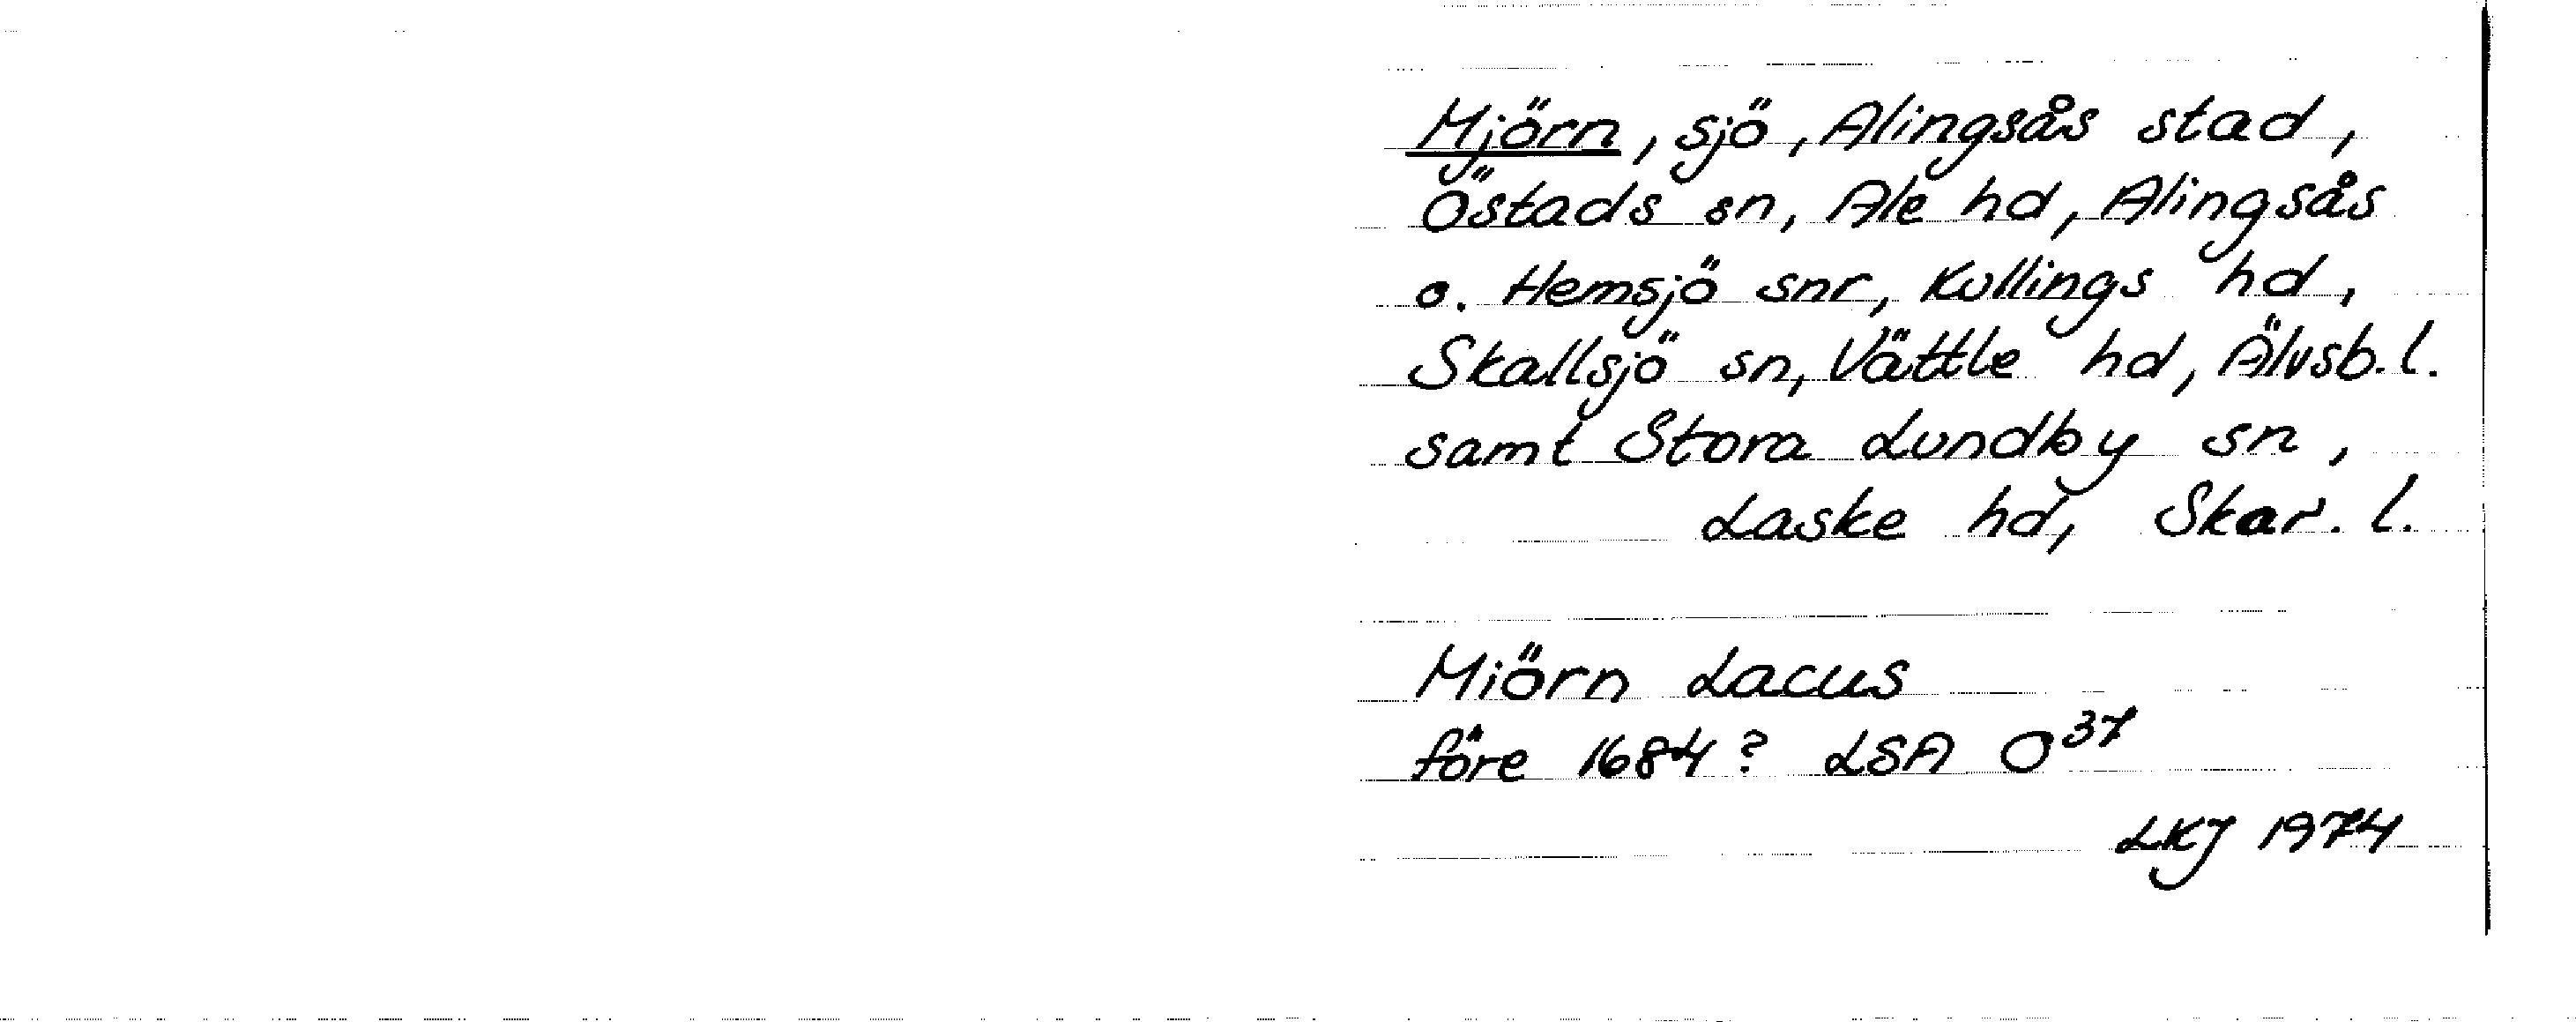 Mjörn, sjö, Alingsås stad,
Östads sn, Ale hd, Alingsås
o. Hemsjö snr, Kullings hd,
Skallsjö sn, Vättle hd, Älvsb. l.
samt Stora Lundby sn,
Laske hd, Skar. l.
Miörn Lacus
före 1684? LSA O37
LKJ 1974